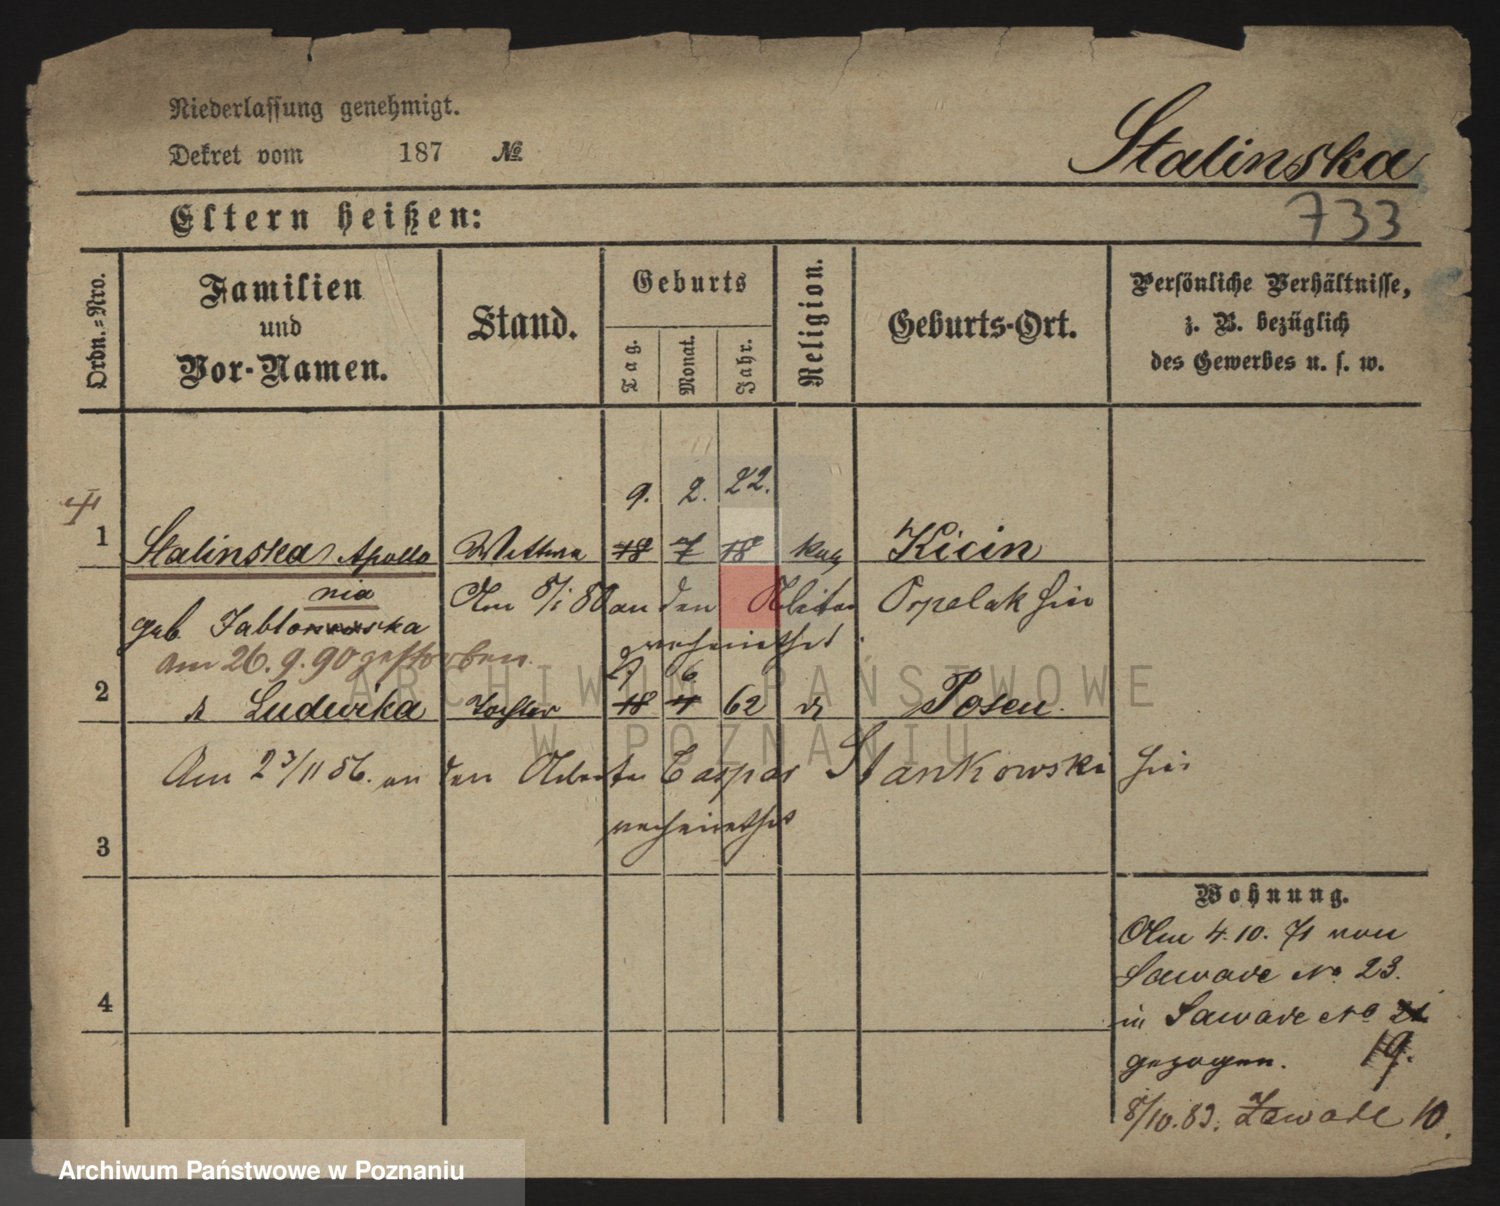 Niederlassung genehmigt.
Dekret vom 187 №
Stalinska
733
Eltern heißen:
Ordn.=Nro.
Familien und Vor-Namen.
Stand.
Geburts
Tag. Monat. Jahr.
Religion.
Geburts-Ort.
Persönliche Verhältnisse,
z. B. bezüglich
des Gewerbes u. s. w.
9. 2. 22.
1 Stalinska Apollo Wittwe 18 7 18 Kicin
nia
Am 8/1 80 an den Arbeiter Hier
geb. Jablonska
verheirathet.
am 26.9.90 gestorben.
6
2 Ludwika Tochter 18 4 62 Posen.
Am 23/11 86. an den Arbeiter Caspar Stankowski hier
verheirathet
3
4
Wohnung.
Am 4.10.71 von
Sawade No 23.
in Sawade No 21
gezogen. 19.
8/10.83. Zawade 10.
ARCHIWUM PAŃSTWOWE
W POZNANIU
Archiwum Państwowe w Poznaniu